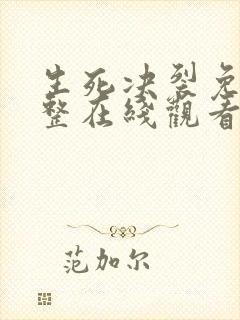 生死决裂免
整在线觀看
范加尔